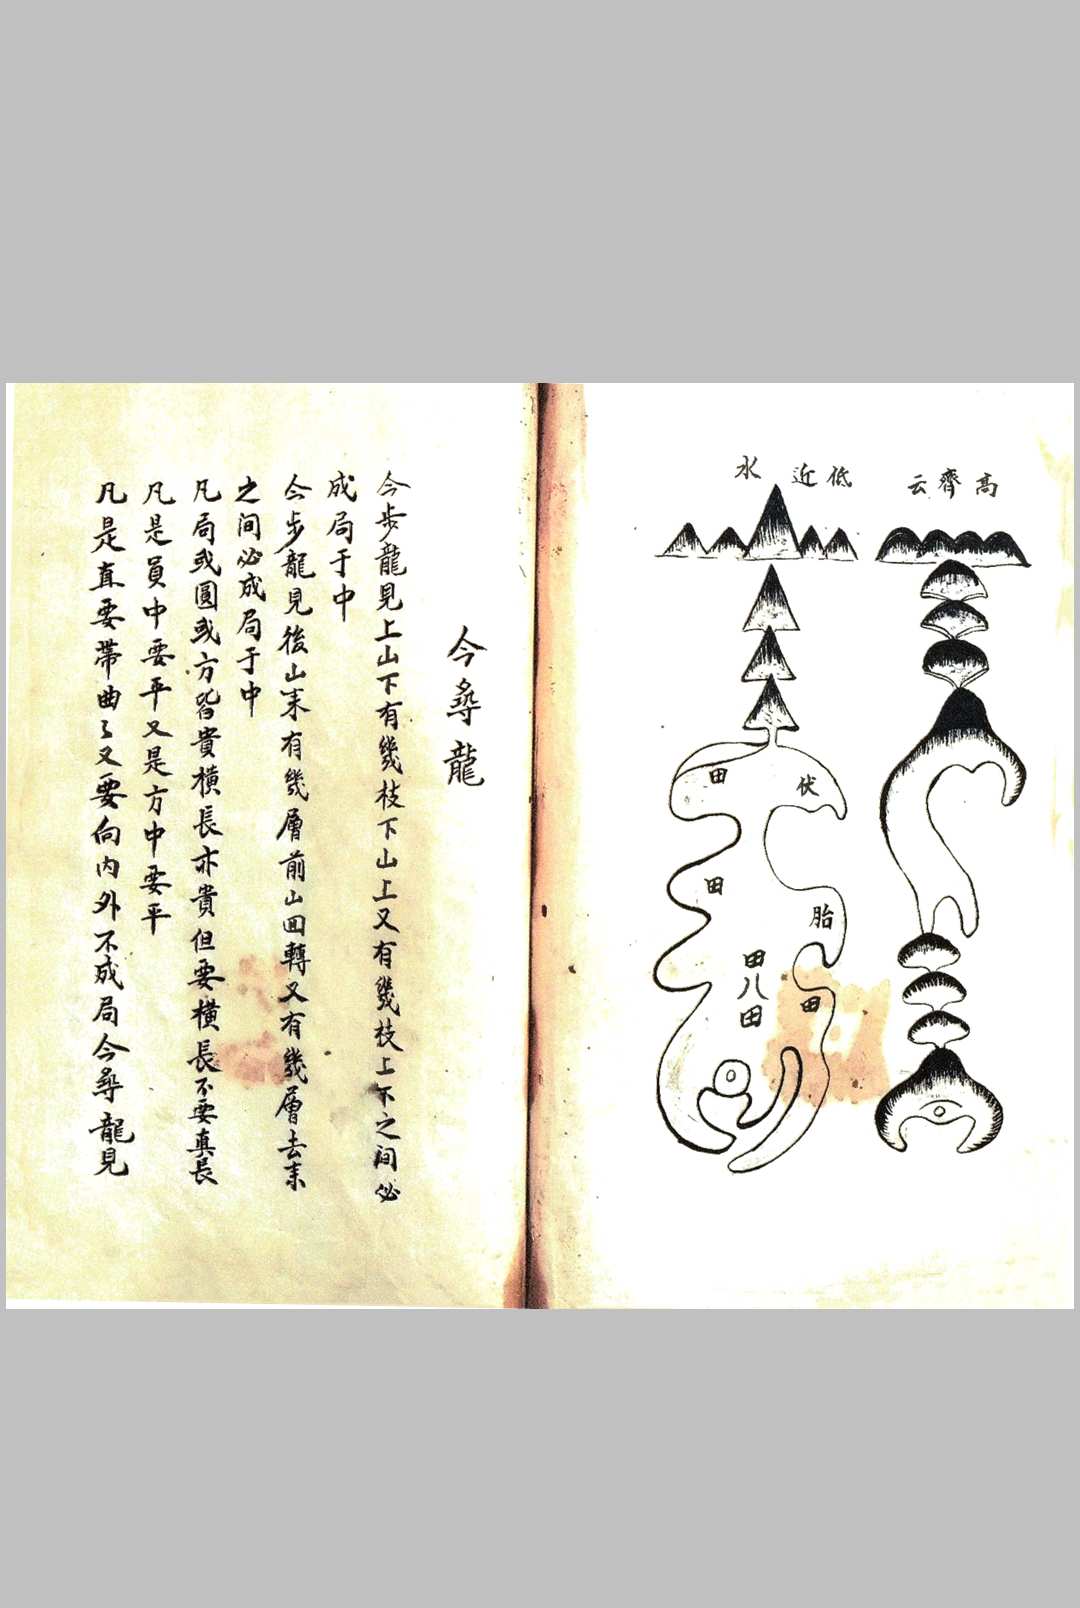 高齊云
低近水
伏
田
田
胎
田
田八田
今尋龍
今步龍見上山下有幾枝下山上又有幾枝上下之间必
成局于中
今步龍見後山来有幾層前山回轉又有幾層去来
之间必成局于中
凡局或圓或方皆貴横長亦貴但要横長不要真長
凡是員中要平又是方中要平
凡是直要帶曲々又要向内外不成局今尋龍見